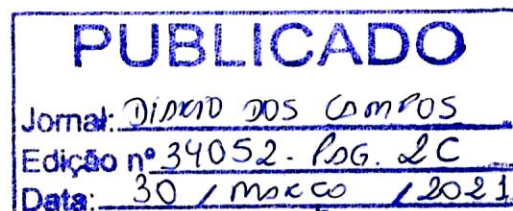 PUBLICADO
Jornal: DIÁRIO DOS CAMPOS
Edição nº 34052 - PÁG. 2C
Data: 30 / MARÇO / 2021